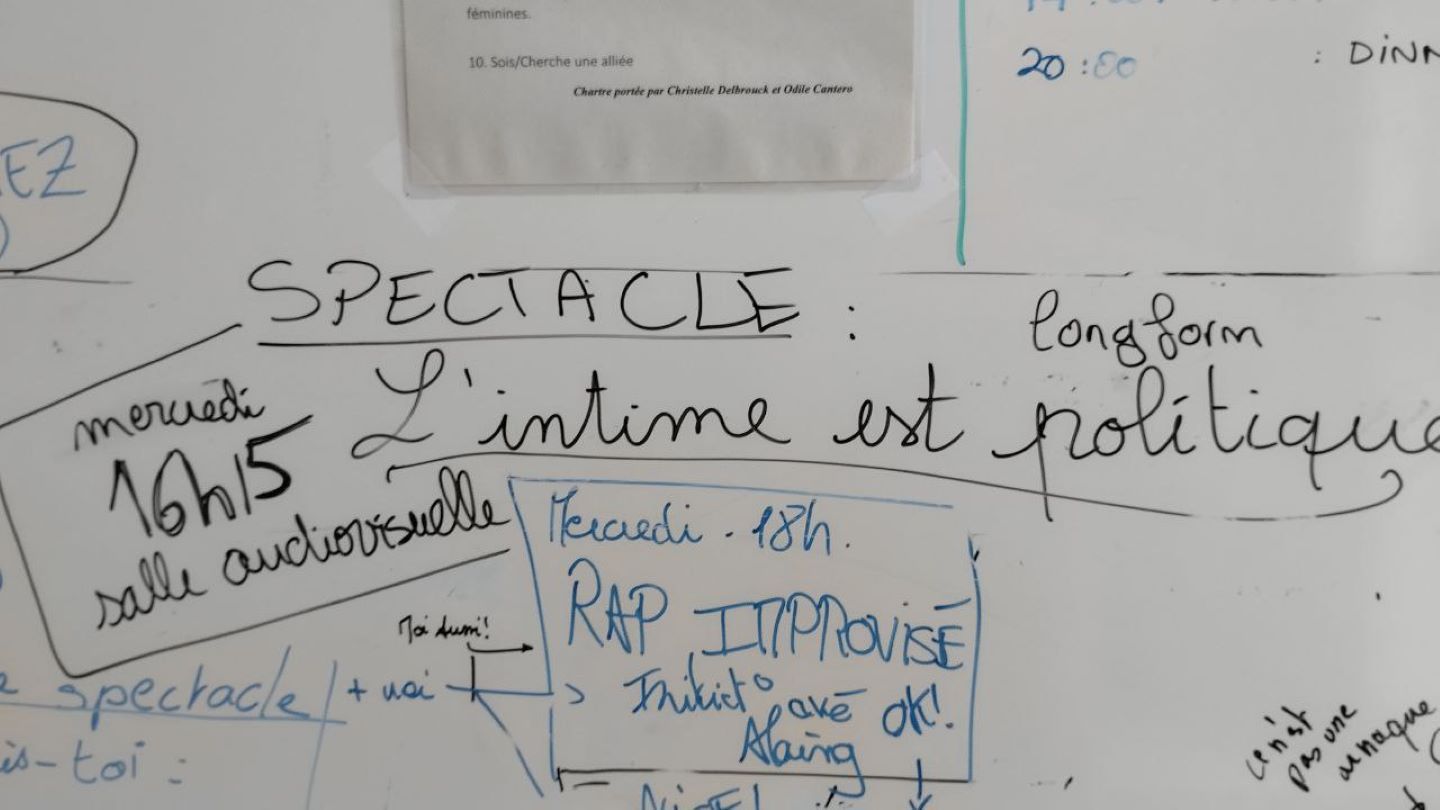 féminines.
10. Sois/Cherche une alliée
Chartre portée par Christelle Delbrouck et Odile Cantero
20:00 : DINN
EZ
SPECTACLE :
longform
L'intime est politique
mercredi
16h15
salle audiovisuelle
Mercredi - 18h.
RAP IMPROVISÉ
avé OK!
Moi aussi!
spectacle + moi
is-toi :
ce n'st
pas une
arnaque